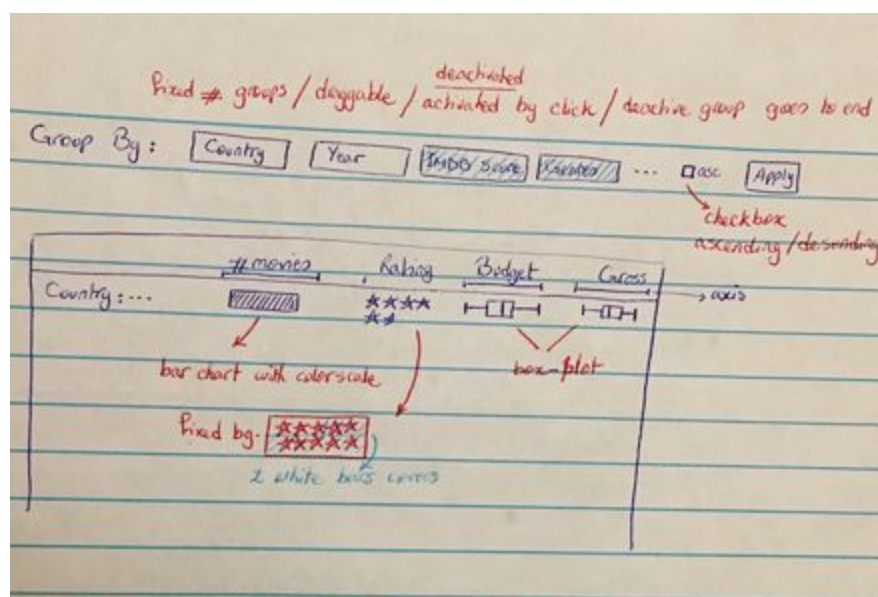 fixed # groups / draggable / deactivated
activated by click / deactive group goes to end
Group By: Country Year IMDB Score ... asc Apply
checkbox
ascending/descending
#movies Rating Budget Gross
Country: ... axis
bar chart with colorscale
box-plot
fixed bg.
2 white bars covers